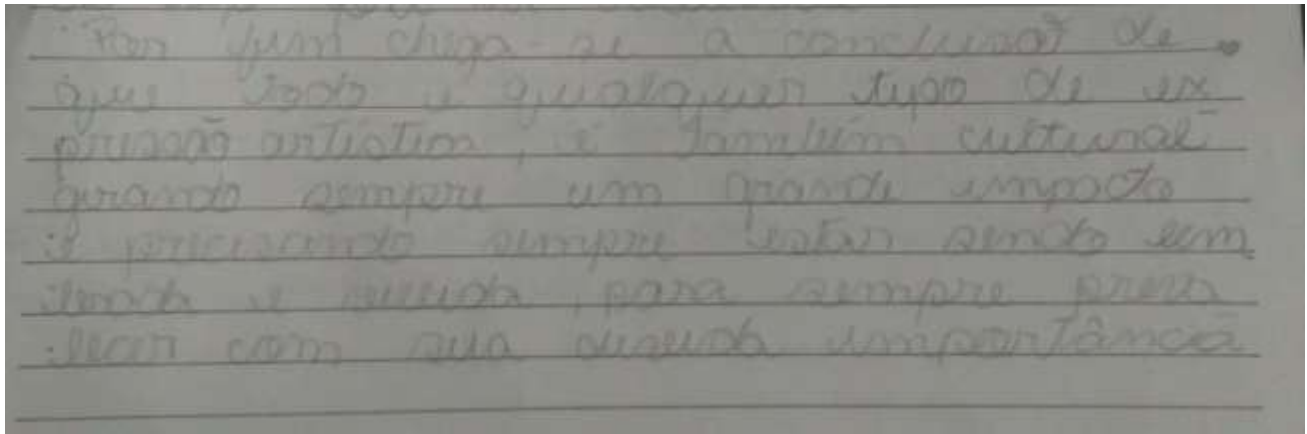 Por fim chega-se a conclusão de
que todo e qualquer typo de ex
pressão artistica, é também cultural
gerando sempre um grande impacto
e precisando sempre estar sendo
e, para sempre
com sua devida importância